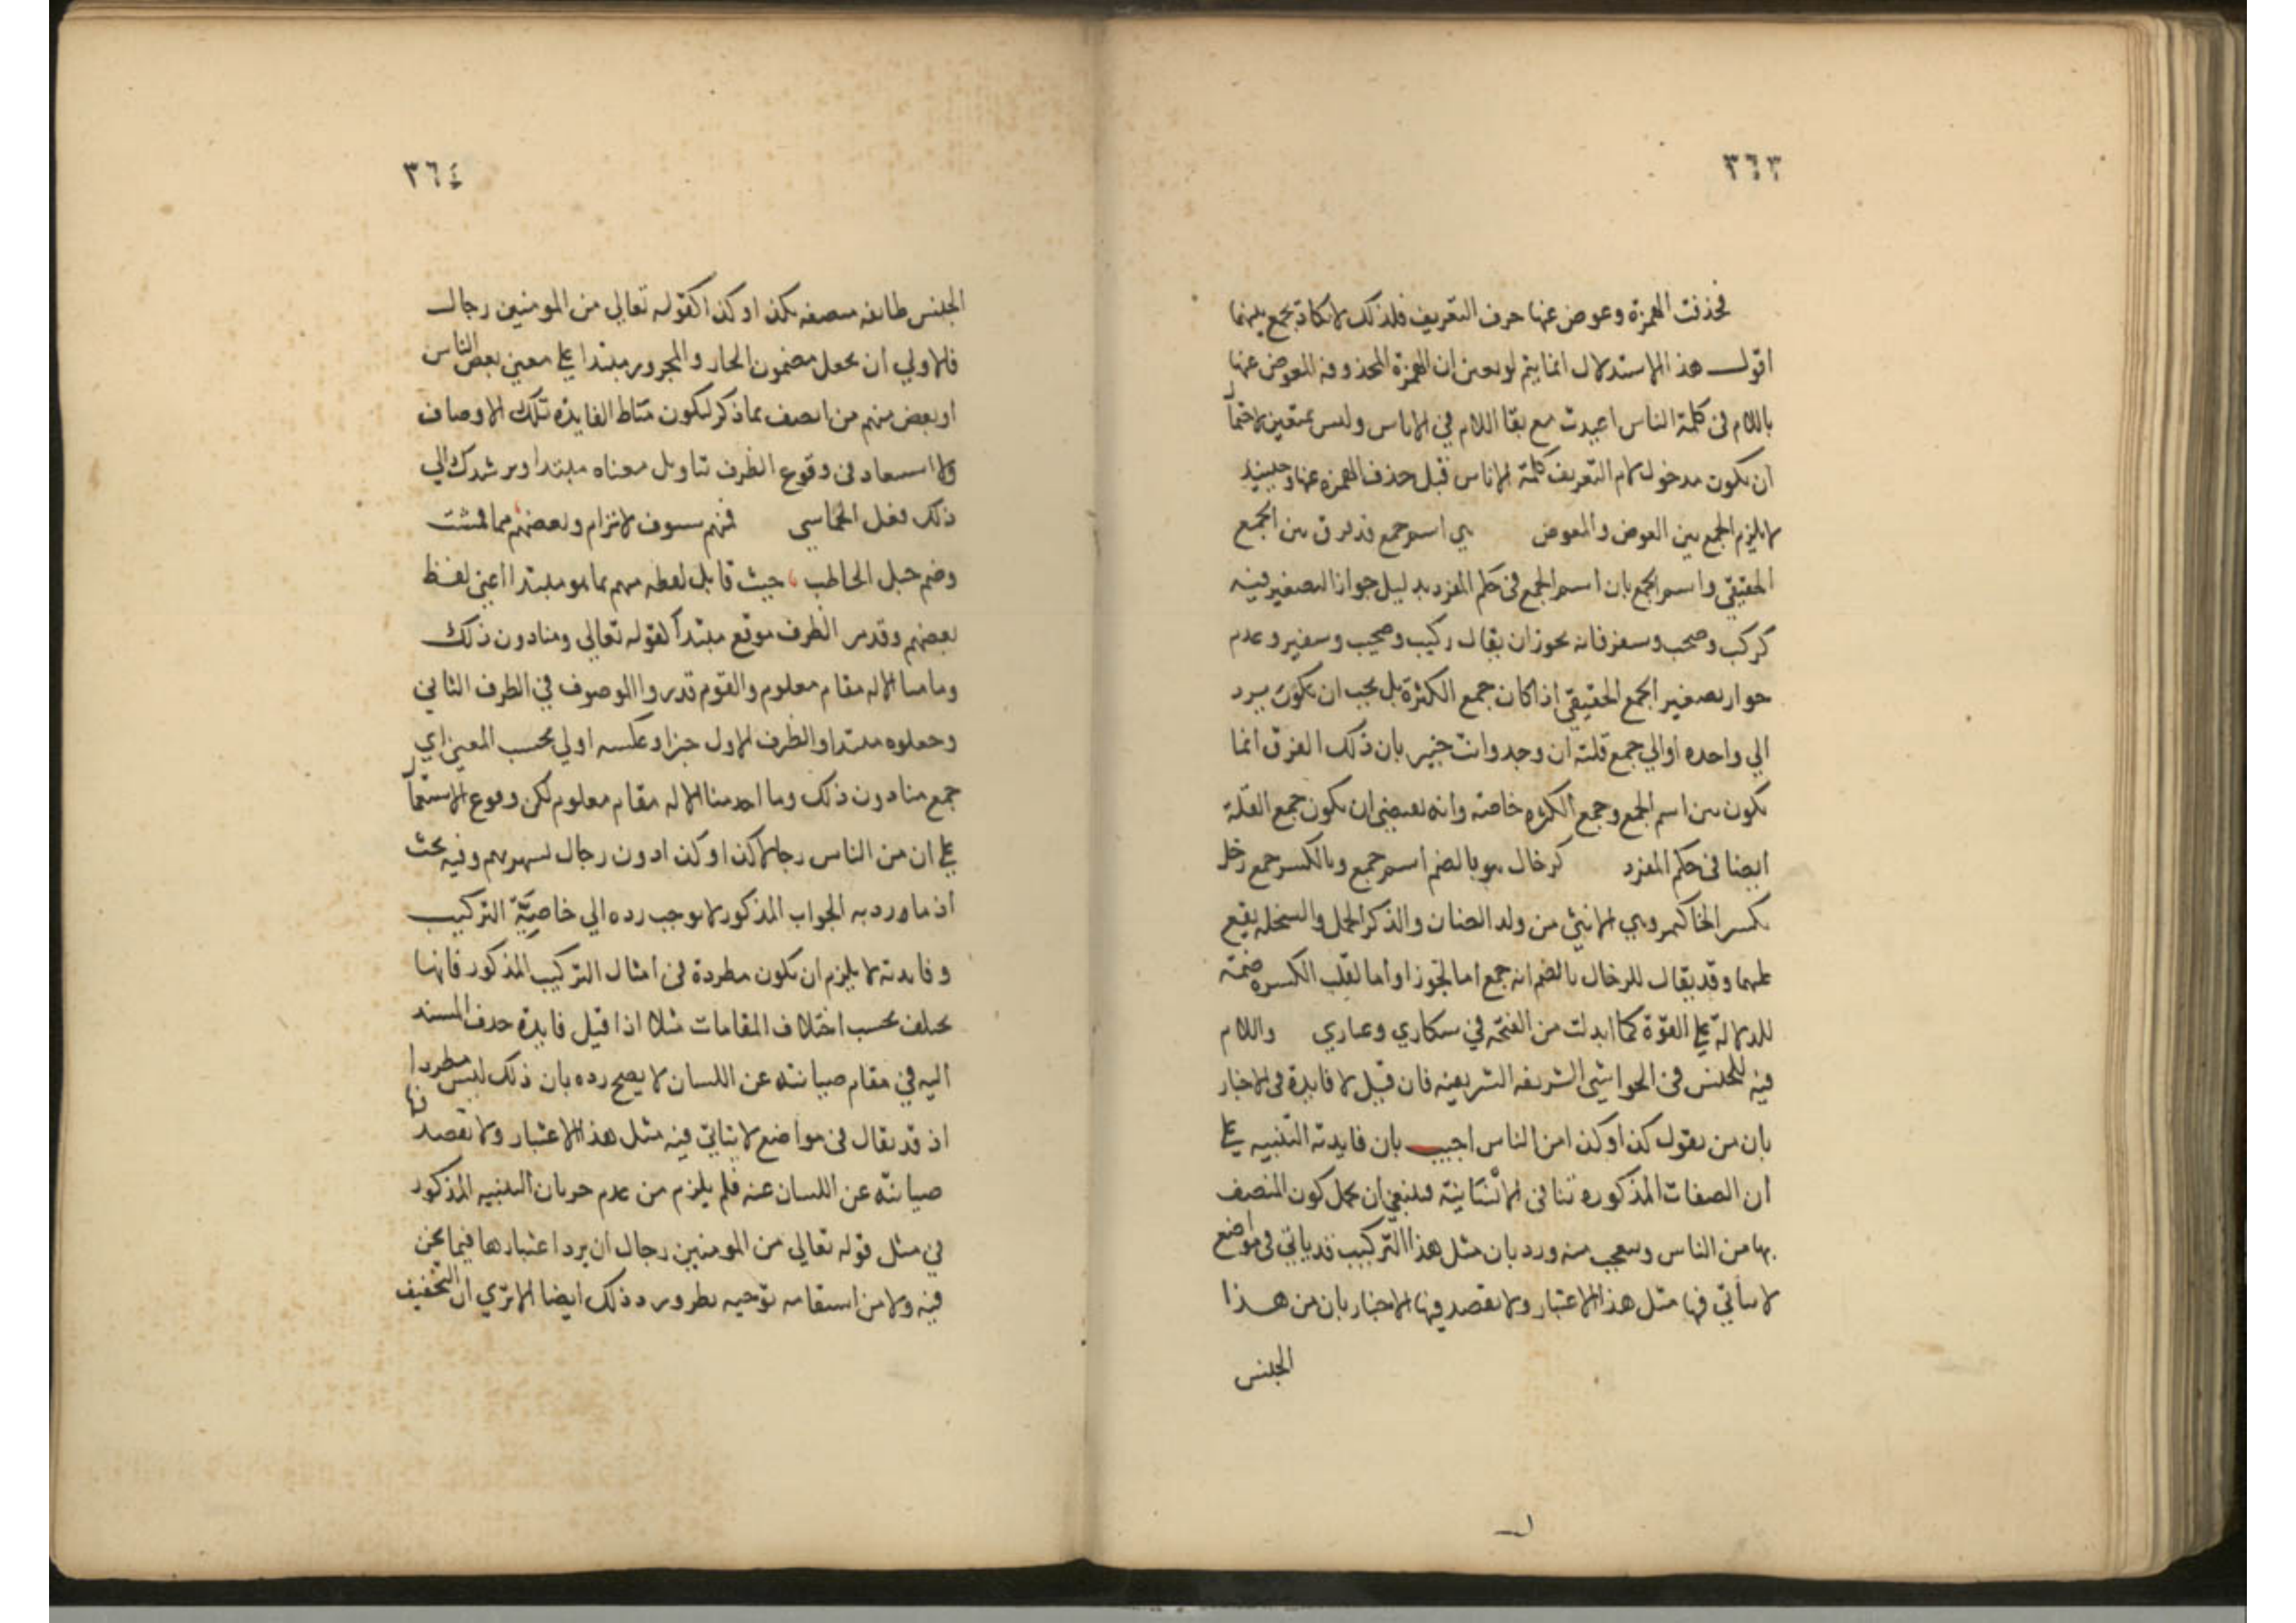 ٣٦٣
فحذفت الهمزة وعوض عنها حرف التعريف فلذلك لا يكاد يجمع بينهما
اقول هذا الاستدلال انما يتم لو تعين ان الهمزة المحذوفة المعوض عنها
باللام فى كلمة الناس اعيدت مع بقا اللام في الاناس وليس بمتعين لاحتما
ان يكون مدخول لام التعريف كلمة الاناس قبل حذف الهمزه عنها وحينيد
لا يلزم الجمع بين العوض والمعوض هي اسم جمع قد فرق بين الجمع
الحقيقي واسم الجمع بان اسم الجمع فى حكم المفرد بدليل جواز التصغير فيه
كركب وصحب وسفر فانه يجوز ان يقال ركيب وصحيب وسفير وعدم
جواز تصغير الجمع الحقيقي اذا كان جمع الكثرة بل يجب ان يكون يرد
الي واحده او الي جمع قلته ان وجد وانت خبير بان ذلك الفرق انما
يكون بين اسم الجمع وجمع الكثره خاصة وانه يقتضي ان يكون جمع القلة
ايضا فى حكم المفرد كرخال هو بالضم اسم جمع وبالكسر جمع رخل
بكسر الخا كـ وهي الانثى من ولد الضان والذكر الحمل والسخلة يقع
عليهما وقد يقال للرخال بالضم انه جمع اما تجوزا واما لقلب الكسره ضمة
للدلالة علي القوة كما ابدلت من الفتحه في سكاري وعـاري واللام
فيه للجنس فى الحواشي الشريفه الشريفيه فان قيل لا فايدة فى الاخبار
بان من يقول كذا وكذا من الناس اجيب بان فايدته التنبيه علي
ان الصفات المذكوره تنافى الانسانية فينبغي ان يجهل كون المتصف
بها من الناس ويتعجب منه ورد بان مثل هذا التركيب قد ياتي فى مواضع
لا يتاتي فيها مثل هذا الاعتبار ولا يقصد فيها الاخبار بان من هذا
الجنس
٣٦٤
الجنس طايفه متصفه بكذا وكذا كقوله تعالي من المومنين رجال
فالاولي ان يجعل مضمون الجار والمجرور مبتدا علي معني بعض الناس
او بعض منهم من اتصف بما ذكر ليكون مناط الفايدة تلك الاوصاف
ولا استبعاد فى وقوع الظرف بتاويل معناه مبتدا ويرشدك الي
ذلك قول الحماسي فمنهم ليوث لا ترام وبعضهم مما قمشت
وضم حبل الحاطب حيث قابل لفظه منهم بما هو مبتدا اعني لفظ
بعضهم وقد الظرف موقع مبتدأ كقوله تعالى ومنا دون ذلك
وما منا الا له مقام معلوم والقوم قدروا الموصوف في الظرف الثاني
وجعلوه مبتدا والظرف الاول خبرا وعكسه اولي بحسب المعني اي
جمع منا دون ذلك وما احد منا الا له مقام معلوم لكن وقوع الاستعما
علي ان من الناس رجالا كذا وكذا دون رجال وفيه بحث
اذ ما ورد به الجواب المذكور لا يوجب رده الي خاصيّة التركيب
وفايدته لا يلزم ان يكون مطردة فى امثال التركيب المذكور فانها
يختلف بحسب اختلاف المقامات مثلا اذا قيل فايدة حذف المسند
اليه في مقام صيانته عن اللسان لا يصح رده بان ذلك ليس مطردا
اذ قد يقال فى مواضع لا يتاتي فيه مثل هذا الاعتبار ولا يقصد
صيانته عن اللسان عنه فلم يلزم من عدم جريان التنبيه المذكور
في مثل قوله تعالي من المومنين رجال ان يرد اعتبارها فيما نحن
فيه ولا من استقامه توجيه بطرو ذلك ايضا الا ترى ان التخفيف